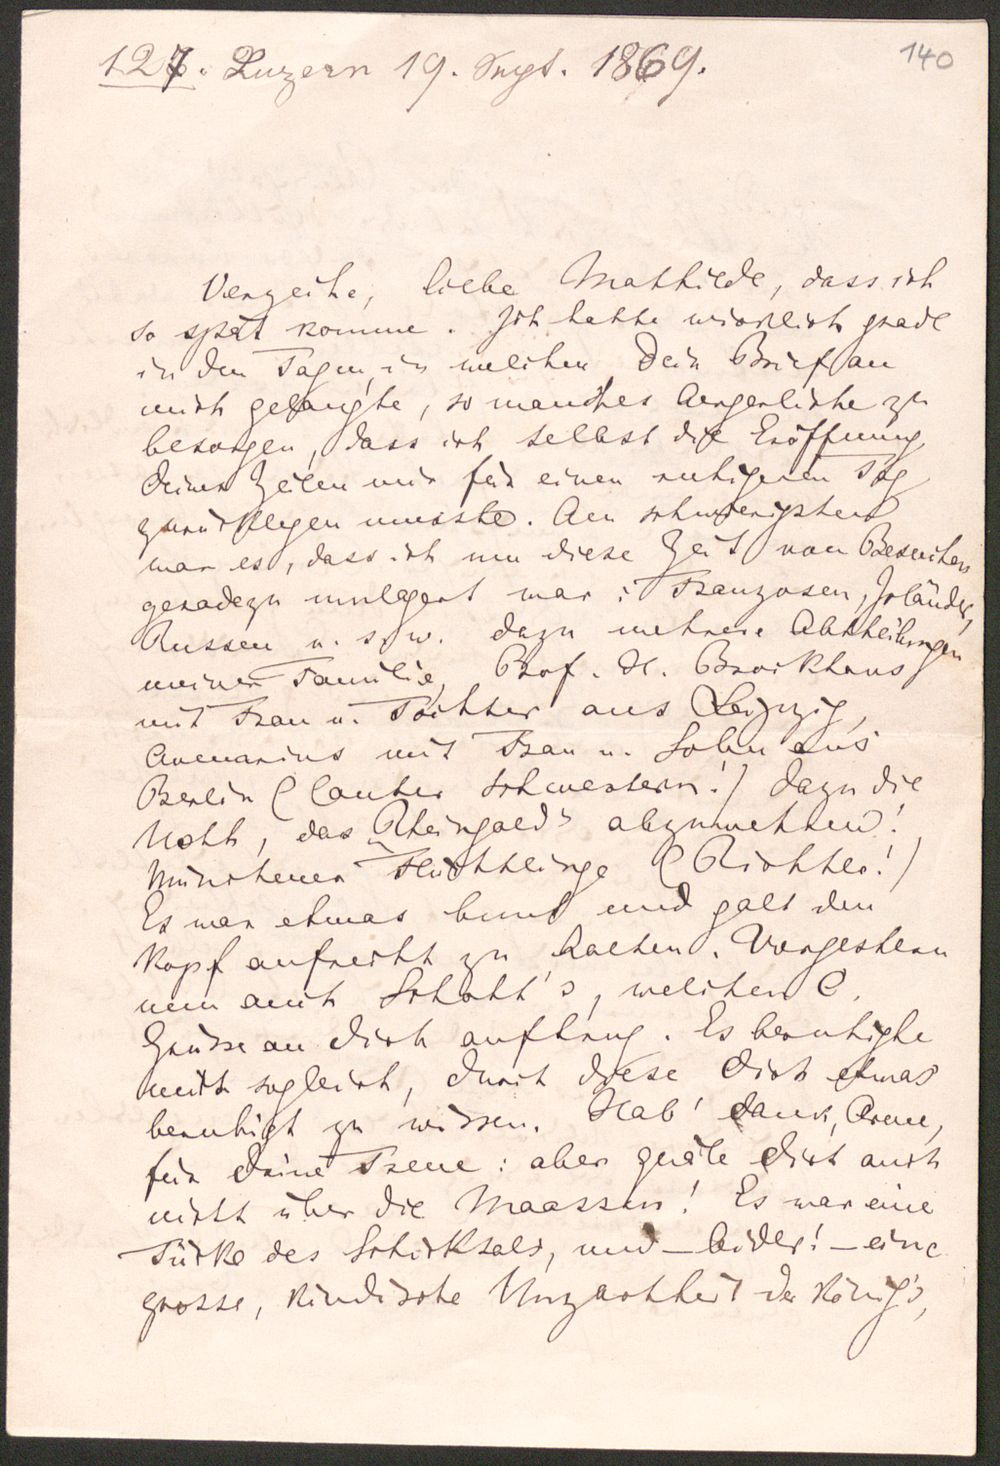 127. Luzern 19. Sept. 1869.
140
Verzeihe, liebe Mathilde, dass ich
so spät komme. Ich hatte wirklich grade
in den Tagen, in welchen Dein Brief an
mich gelangte, so manches Aergerliche zu
besorgen, dass ich selbst die Eröffnung
Deiner Zeilen mir für einen ruhigeren Tag
zurücklegen musste. Am schwierigsten
war es, dass ich um diese Zeit von Besuchen
geradezu umlagert war: Franzosen, Irländer,
Russen u. s. w. dazu mehrere Abtheilungen
meiner Familie, Prof. H. Brockhaus
mit Frau u. Tochter aus Leipzig,
Avenarius mit Frau u. Sohn aus
Berlin (lauter Schwestern!) dazu die
Noth, das „Rheingold“ abzuwehren!
Münchener Flüchtlinge (Richter!)
Es war etwas bunt und galt den
Kopf aufrecht zu halten. Vorgestern
nun auch Schott's, welchen C.
Grüsse an Dich auftrug. Es beruhigte
mich sogleich, durch diese Dich etwas
beruhigt zu wissen. Hab' Dank, Arme,
für Deine Treue: aber quäle Dich auch
nicht über die Maassen! Es war eine
Tücke des Schicksals, und – leider! – eine
grosse, kindische Unzartheit des Königs,